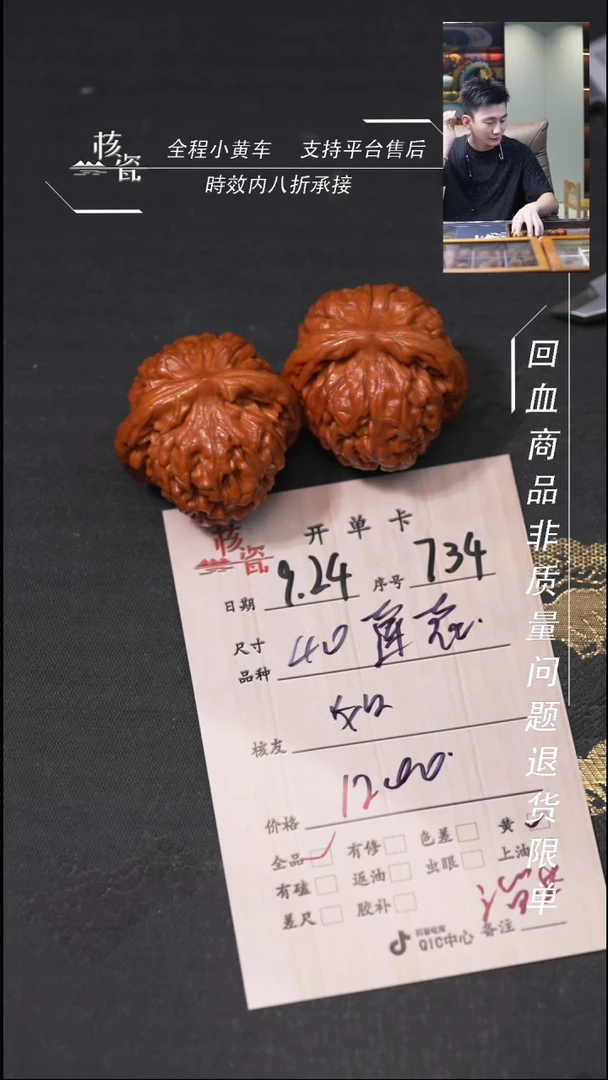 核瓷
全程小黄车 支持平台售后
時效内八折承接
回血商品非质量问题退货限单
核瓷
开单卡
日期 9.24 序号 734
尺寸 40
品种
核友
价格 1200.
全品 有修 色差 黄
有磕 返油 虫眼 上油
差尺 胶补
抖音电商
QIC中心 备注